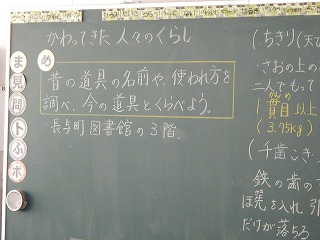 かわってきた人々のくらし
め
昔の道具の名前や、使われ方を
調べ、今の道具とくらべよう。
長与町図書館の3階。
ま
見
問
ト
ふ
ポ
(ちきり(天び
さおの上の
二人でもって
1貫目以上
(3.75kg)
(千歯こき
鉄の歯の
を入れ引
だけが落ちる